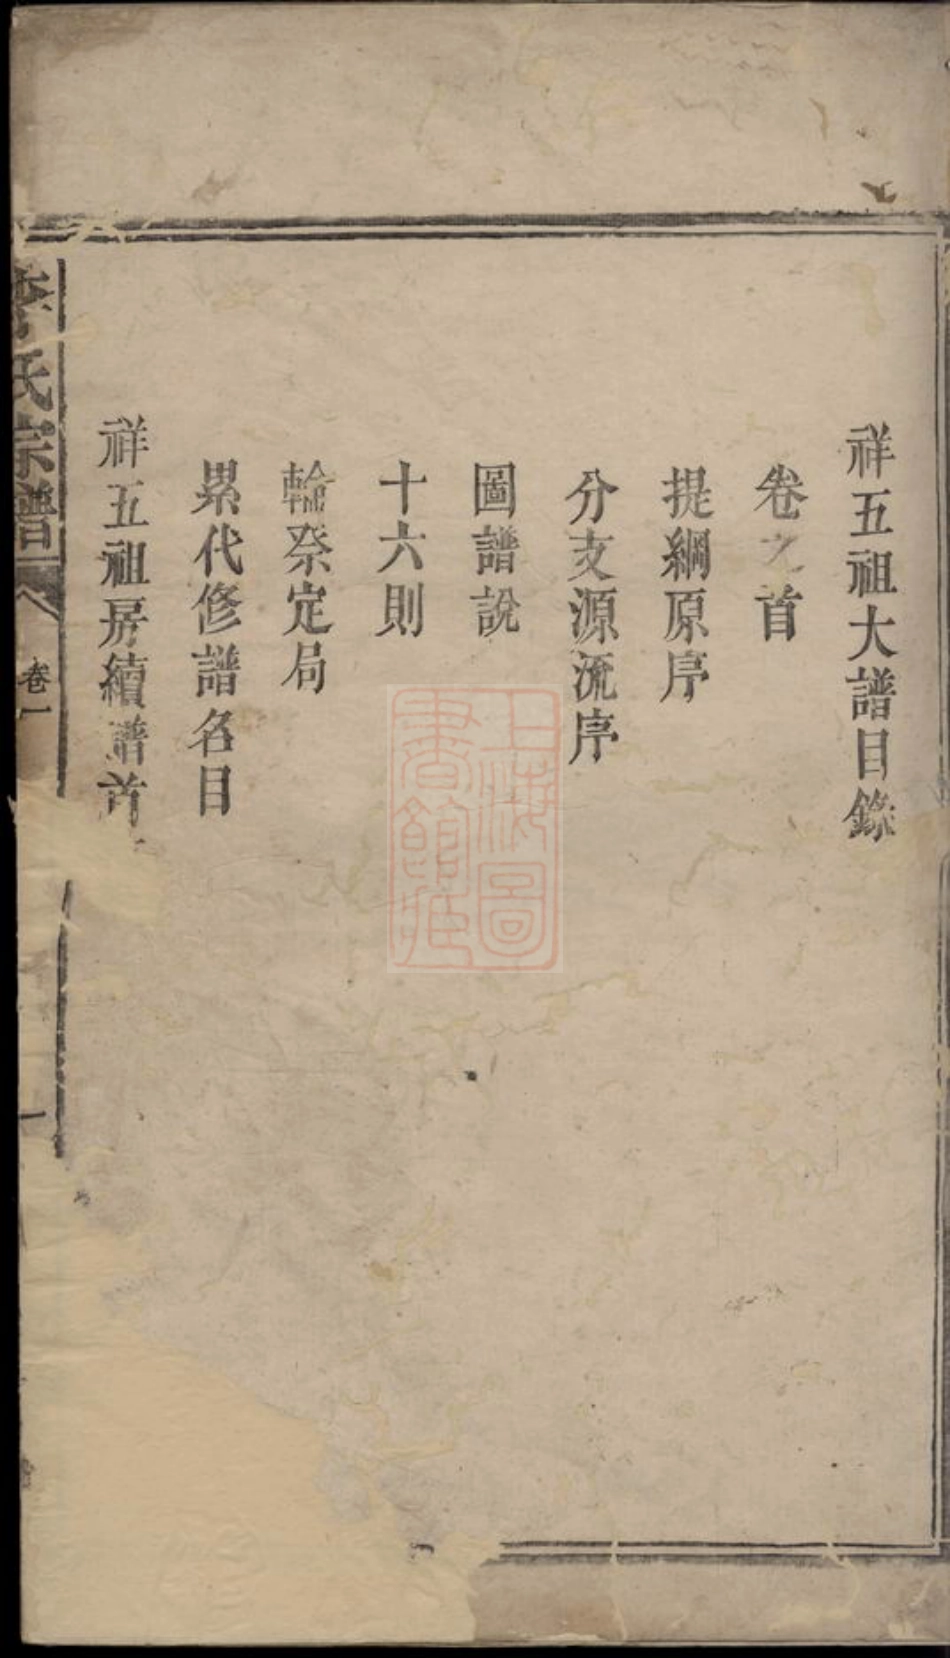 祥五祖大譜目錄
卷之首
提綱原序
分支源流序
圖譜說
十六則
輪祭定局
累代修譜名目
祥五祖房續譜首
李氏宗譜
卷一
一
上海圖
書館藏